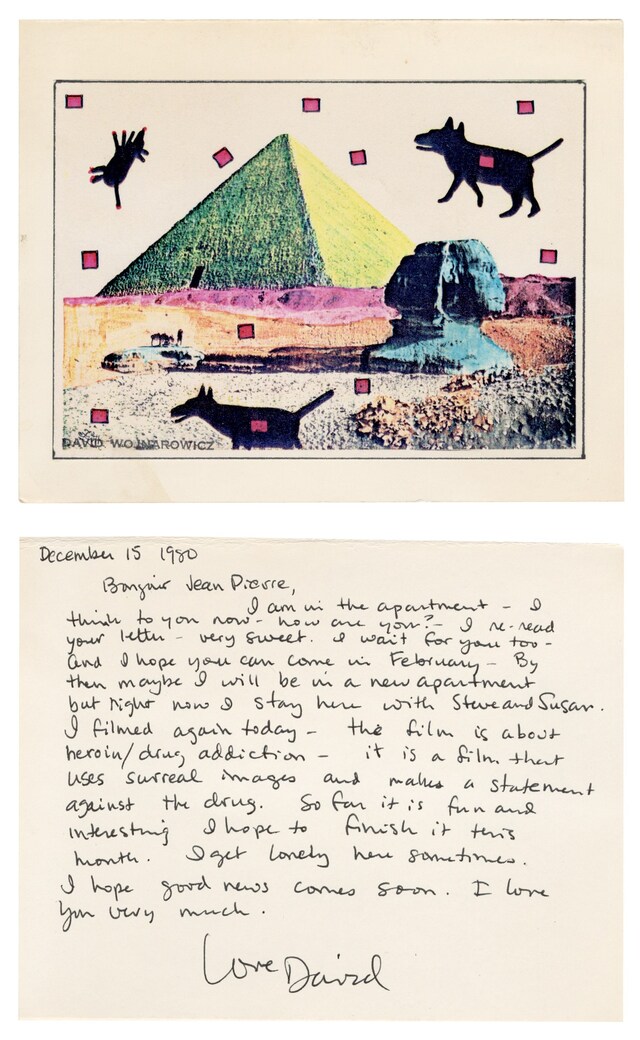 DAVID WOJNAROWICZ
December 15 1980
Bonjour Jean Pierre,
I am in the apartment - I
think to you now - how are you? - I re-read
your letter - very sweet. I wait for you too -
and I hope you can come in February - By
then maybe I will be in a new apartment
but right now I stay here with Steve and Susan.
I filmed again today - the film is about
heroin/drug addiction - it is a film that
uses surreal images and makes a statement
against the drug. So far it is fun and
interesting I hope to finish it this
month. I get lonely here sometimes.
I hope good news comes soon. I love
you very much.
Love David